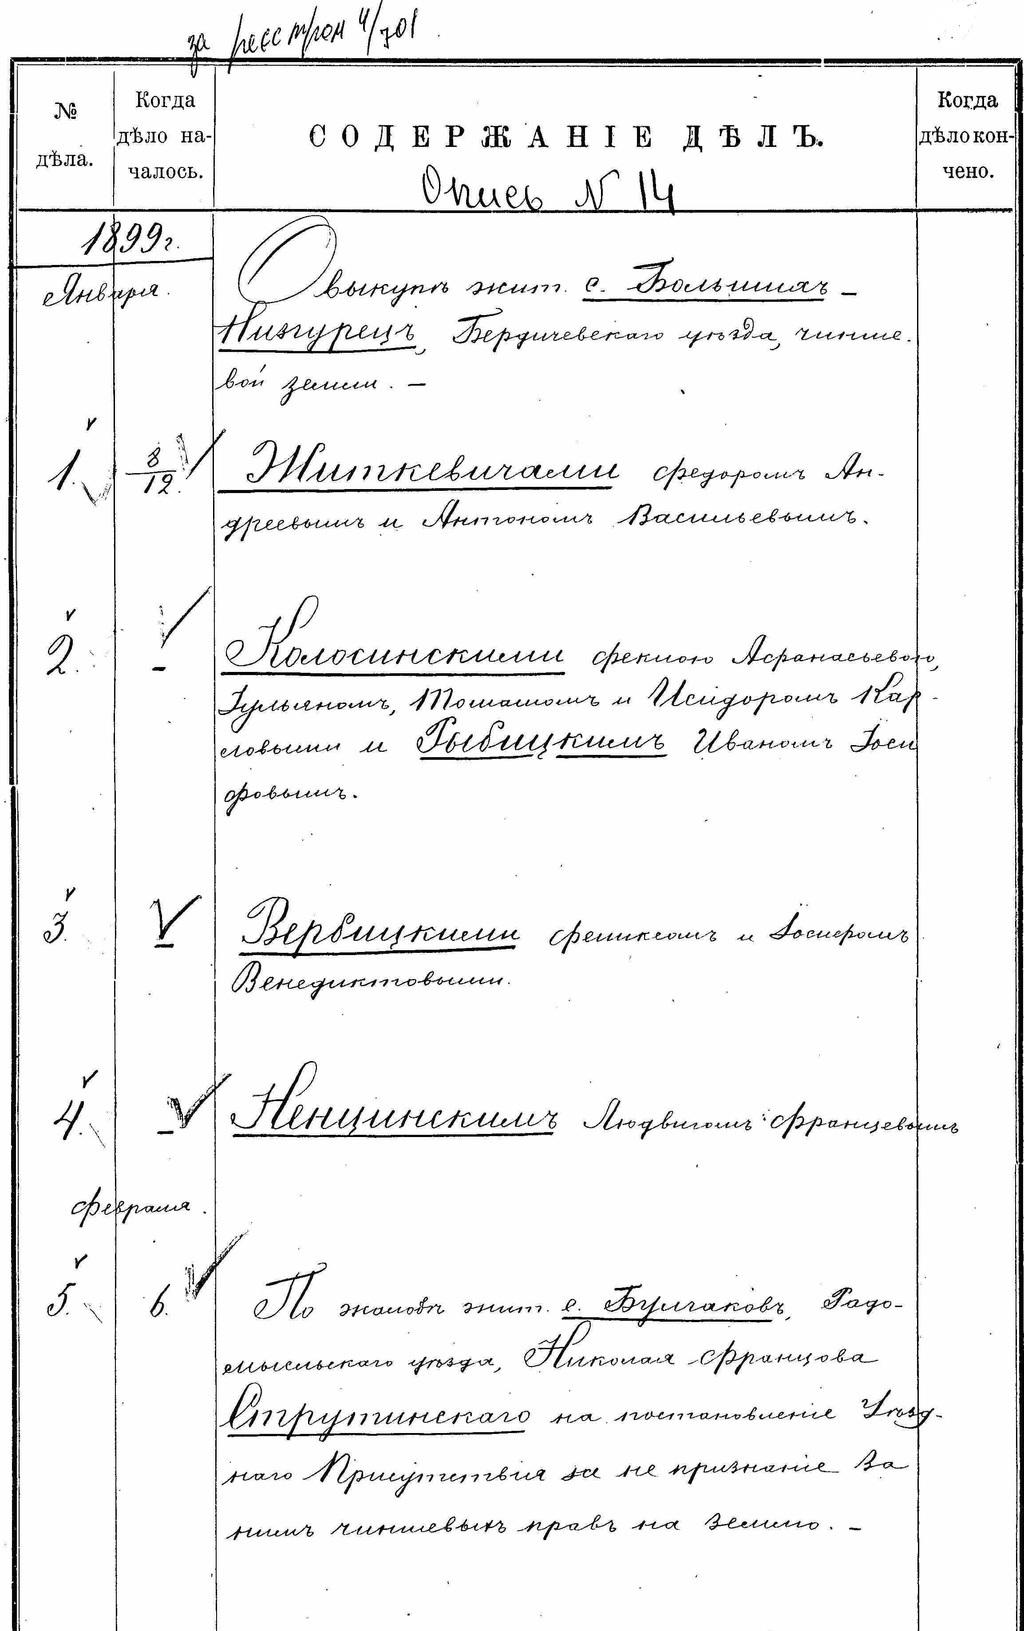 за реестром 4/701
№ дѣла.
Когда дѣло началось.
СОДЕРЖАНІЕ ДѢЛЪ.
Когда дѣло кончено.
Опись N 14
1899 г.
Января.
О выкупѣ жит. с. Большихъ -
Низгурецъ, Бердичевскаго уѣзда, чинше-
вой земли. -
1. 8/12. Житкевичами Федоромъ Ан-
дреевымъ и Антономъ Васильевымъ.
2. - Колосинскими Феклою Афанасьевою,
Іульяномъ, Томашомъ и Исидоромъ Кар-
ловыми и Рыбицкимъ Иваномъ Іоси
фовымъ.
3. - Вербицкими Феликсомъ и Іосифомъ
Венедиктовыми.
4. - Ненцинскимъ Людвигомъ Францевымъ
Февраля.
5. 6. По жалобѣ жит. с. Булгаковъ, Радо-
мысльскаго уѣзда, Николая Францова
Струтинскаго на постановленіе Уѣзд-
наго Присутствія за не признаніе за
нимъ чиншевыхъ правъ на землю. -